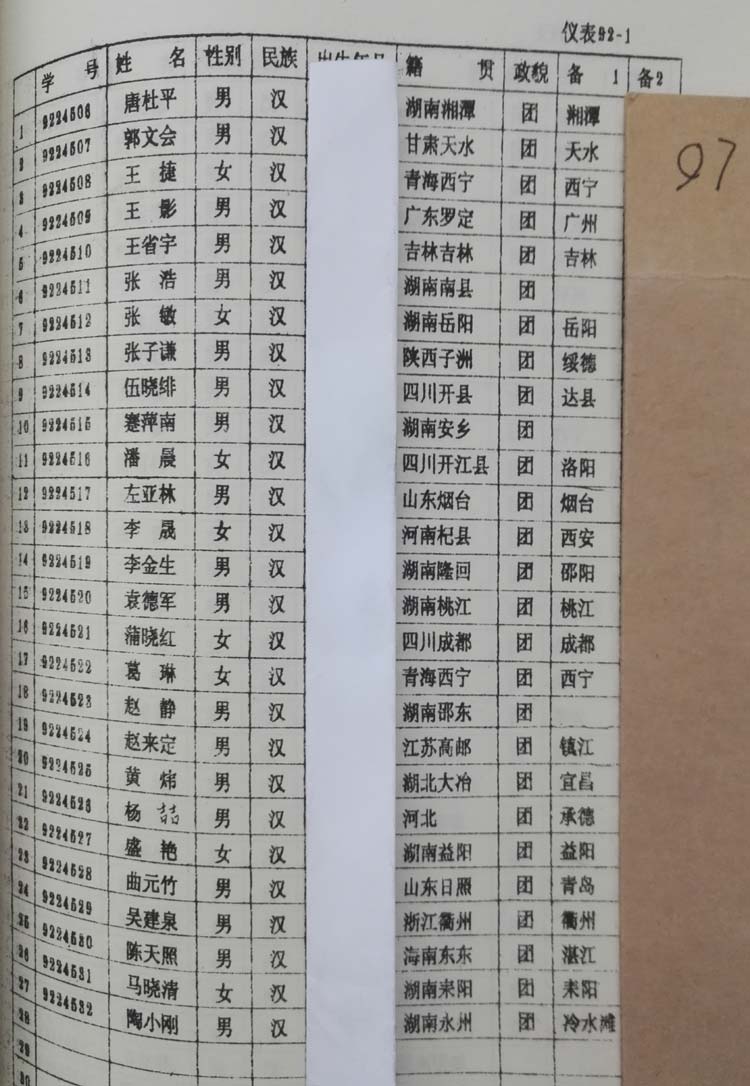 仪表92-1
学 号 姓 名 性别 民族 籍 贯 政貌 备 1 备2
1 9224506 唐杜平 男 汉 湖南湘潭 团 湘潭
2 9224507 郭文会 男 汉 甘肃天水 团 天水
3 9224508 王 捷 女 汉 青海西宁 团 西宁
4 9224509 王 影 男 汉 广东罗定 团 广州
5 9224510 王省宇 男 汉 吉林吉林 团 吉林
6 9224511 张 浩 男 汉 湖南南县 团
7 9224512 张 敏 女 汉 湖南岳阳 团 岳阳
8 9224513 张子谦 男 汉 陕西子洲 团 绥德
9 9224514 伍晓绯 男 汉 四川开县 团 达县
10 9224515 蹇萍南 男 汉 湖南安乡 团
11 9224516 潘 晨 女 汉 四川开江县 团 洛阳
12 9224517 左亚林 男 汉 山东烟台 团 烟台
13 9224518 李 晟 女 汉 河南杞县 团 西安
14 9224519 李金生 男 汉 湖南隆回 团 邵阳
15 9224520 袁德军 男 汉 湖南桃江 团 桃江
16 9224521 蒲晓红 女 汉 四川成都 团 成都
17 9224522 葛 琳 女 汉 青海西宁 团 西宁
18 9224523 赵 静 男 汉 湖南邵东 团
19 9224524 赵来定 男 汉 江苏高邮 团 镇江
20 9224525 黄 炜 男 汉 湖北大冶 团 宜昌
21 9224526 杨 喆 男 汉 河北 团 承德
22 9224527 盛 艳 女 汉 湖南益阳 团 益阳
23 9224528 曲元竹 男 汉 山东日照 团 青岛
24 9224529 吴建泉 男 汉 浙江衢州 团 衢州
25 9224530 陈天照 男 汉 海南东东 团 湛江
26 9224531 马晓清 女 汉 湖南耒阳 团 耒阳
27 9224532 陶小刚 男 汉 湖南永州 团 冷水滩
28
29
30
97